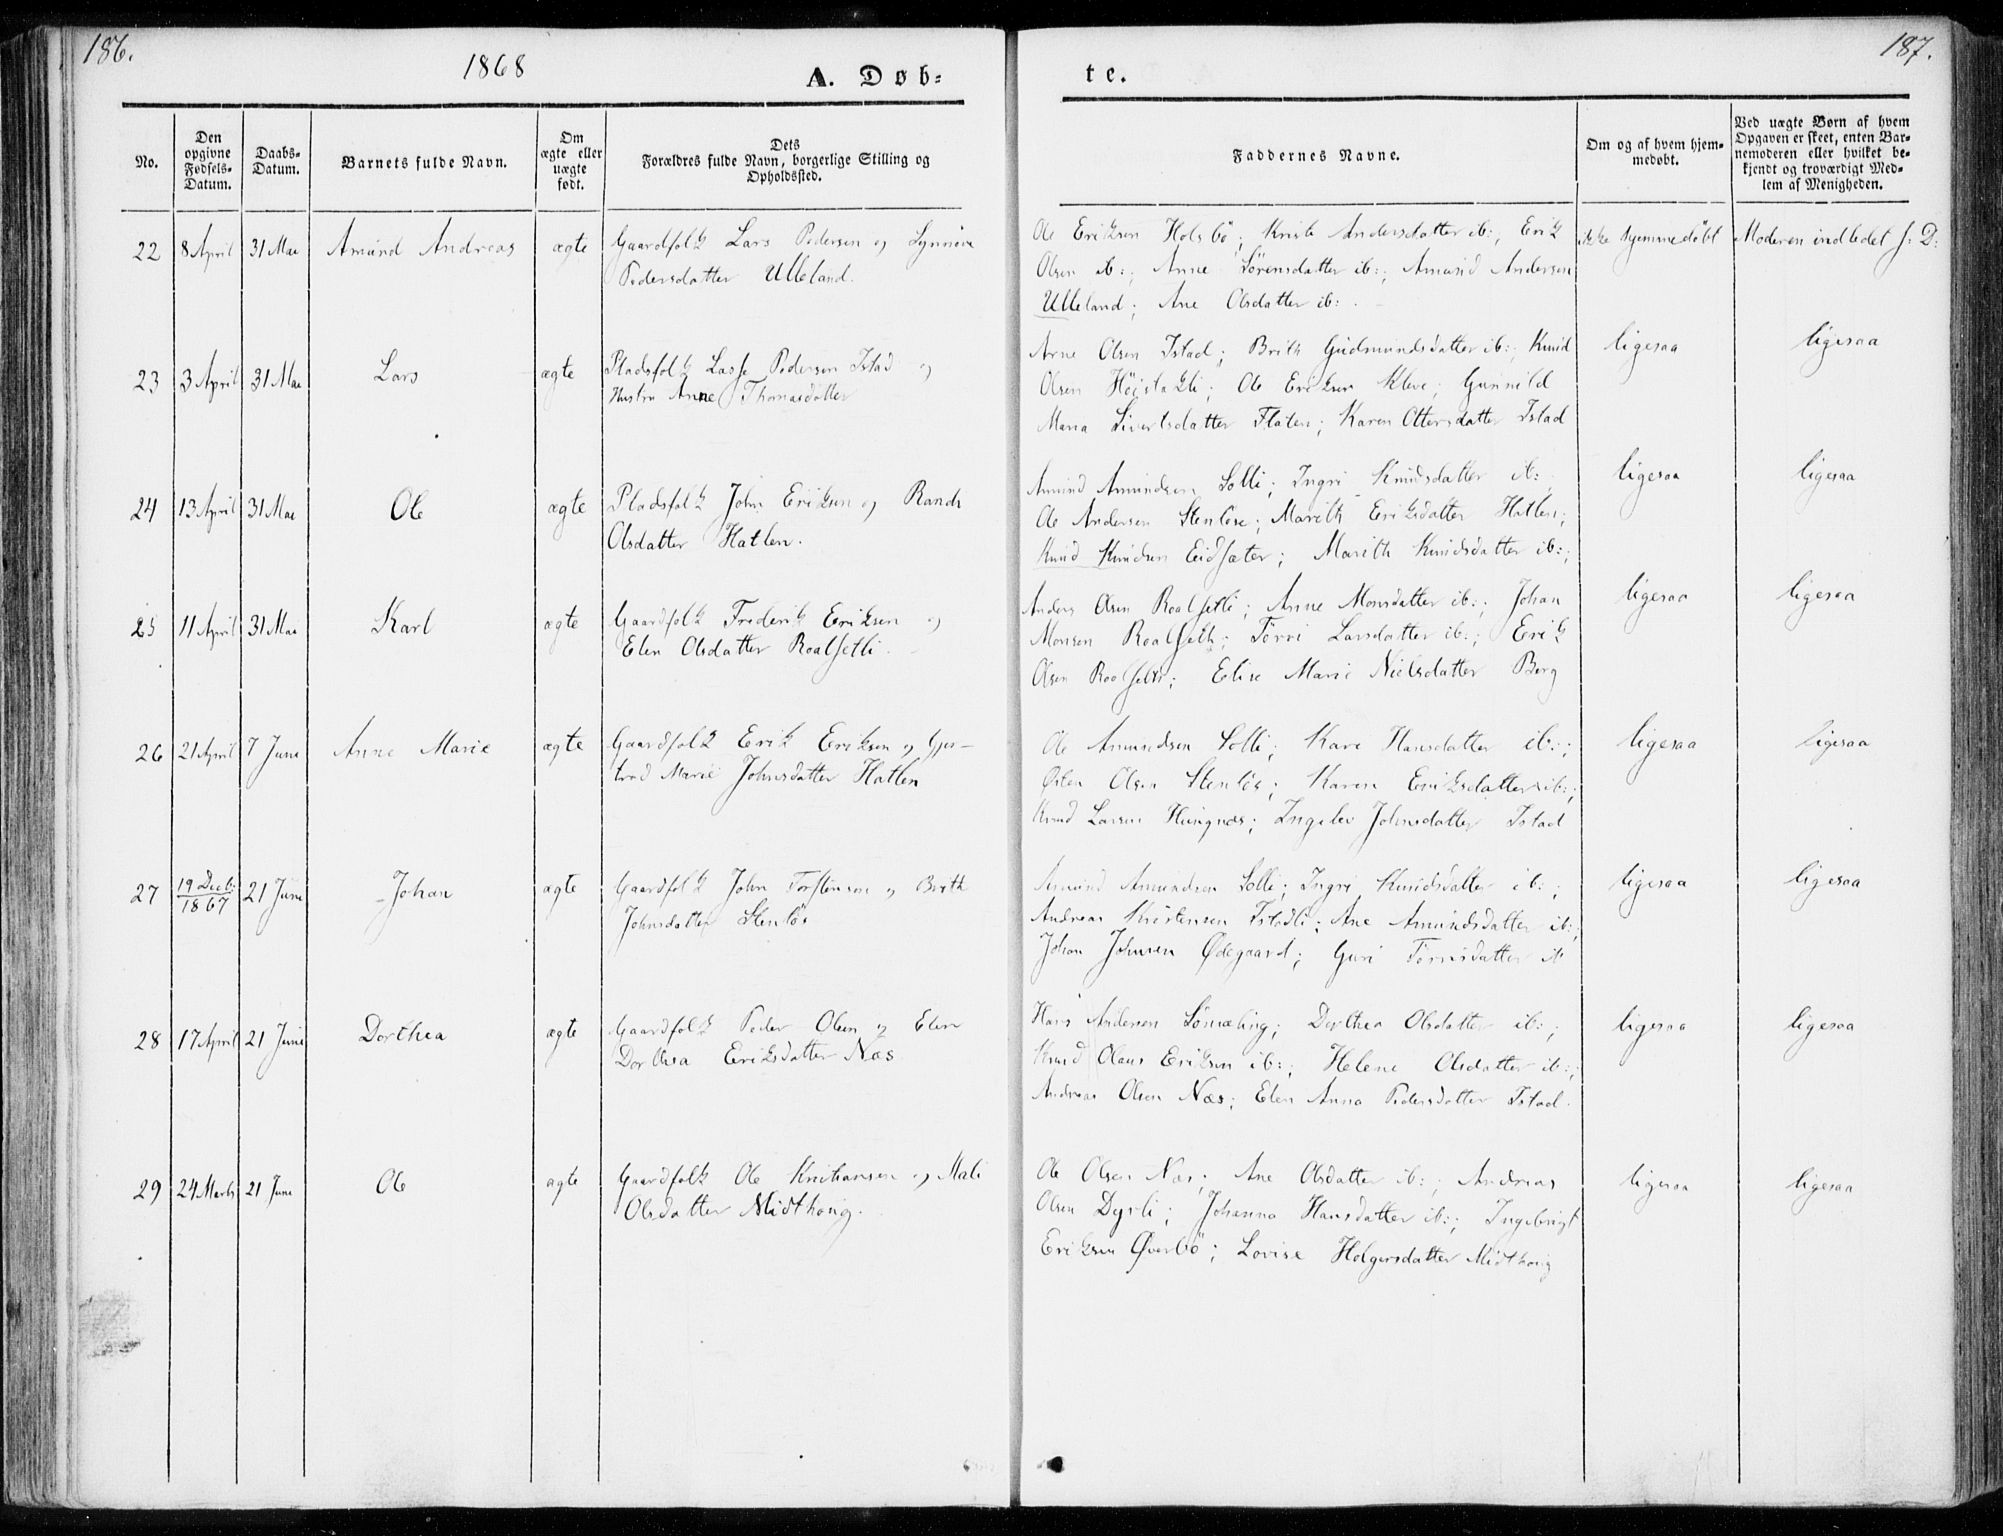 186.
1868
A. Døb=
te.
187.
No.
Den opgivne Fødsels-Datum.
Daabs-Datum.
Barnets fulde Navn.
Om ægte eller uægte født.
Dets Forældres fulde Navn, borgerlige Stilling og Opholdssted.
Faddernes Navne.
Om og af hvem hjemmedøbt.
Ved uægte Børn af hvem Opgaven er skeet, enten Barnemoderen eller hvilket bekjendt og troværdigt Medlem af Menigheden.
22 8 April 31 Mai Amund Andreas ægte Gaardfolk Lars Pedersen og Synnøve
Pedersdatter Ulleland.
Ole Eriksen Holsbö; Kristi Andersdatter ib:; Erik
Olsen ib:; Anne Sörensdatter ib:; Amund Andersen
Ulleland; Ane Olsdatter ib:.
ikke hjemmedöbt
Moderen indledet s: D:
23 3 April 31 Mai Lars ægte Pladsfolk Lasse Pedersen Istad og
Hustru Anne Thomasdatter
Arne Olsen Istad; Brith Gudmundsdatter ib:; Knud
Olsen Höistakli; Ole Eriksen Kleve; Gunnild
Maria Sivertsdatter Flaten; Karen Ottersdatter Istad
ligesaa
ligesaa
24 13 April 31 Mai Ole ægte Pladsfolk John Eriksen og Randi
Olsdatter Hatlen.
Amund Amundsen Solli; Ingri Knudsdatter ib:
Ole Andersen Stenlöse; Marith Eriksdatter Hatlen;
Knud Knudsen Eidsæter; Marith Knudsdatter ib:;
ligesaa
ligesaa
25 11 April 31 Mai Karl ægte Gaardfolk Frederik Eriksen og
Elen Olsdatter Roalsetli.
Anders Olsen Roalsetli; Anne Monsdatter ib:; Johan
Monsen Roalseth; Törri Larsdatter ib:; Erik
Olsen Roalseth; Elise Marie Nielsdatter Berg
ligesaa
ligesaa
26 21 April 7 Juni Anne Marie ægte Gaardfolk Erik Eriksen og Gjer-
trud Marie Johnsdatter Hatlen
Ole Amundsen Solli; Kari Hansdatter ib:;
Østen Olsen Stenlös; Karen Eriksdatter ib:;
Knud Larsen Hungnæs; Ingelev Johnsdatter Istad
ligesaa
ligesaa
27 19 Decb: 1867 21 Juni Johan ægte Gaardfolk John Torstensen og Brith
Johnsdatter Stenlös
Amund Amundsen Solli; Ingri Knudsdatter ib:;
Andreas Kristensen Istadli; Ane Amundsdatter ib:;
Johan Johnsen Ødegaard; Guri Törrisdatter ib
ligesaa
ligesaa
28 17 April 21 Juni Dorthea ægte Gaardfolk Peder Olsen og Elen
Dorthea Eriksdatter Næs
Hans Andersen Sömæling; Dorthea Olsdatter ib:;
Knud Olaus Eriksen ib:; Helene Olsdatter ib:;
Andreas Olsen Næs; Elen Anna Pedersdatter Istad.
ligesaa
ligesaa
29 24 Marts 21 Juni Ole ægte Gaardfolk Ole Kristiansen og Mali
Olsdatter Midthoug.
Ole Olsen Næs; Ane Olsdatter ib:; Andreas
Olsen Dyrli; Johanna Hansdatter ib:; Ingebrigt
Eriksen Øverbö; Lovise Holgersdatter Midthoug
ligesaa
ligesaa